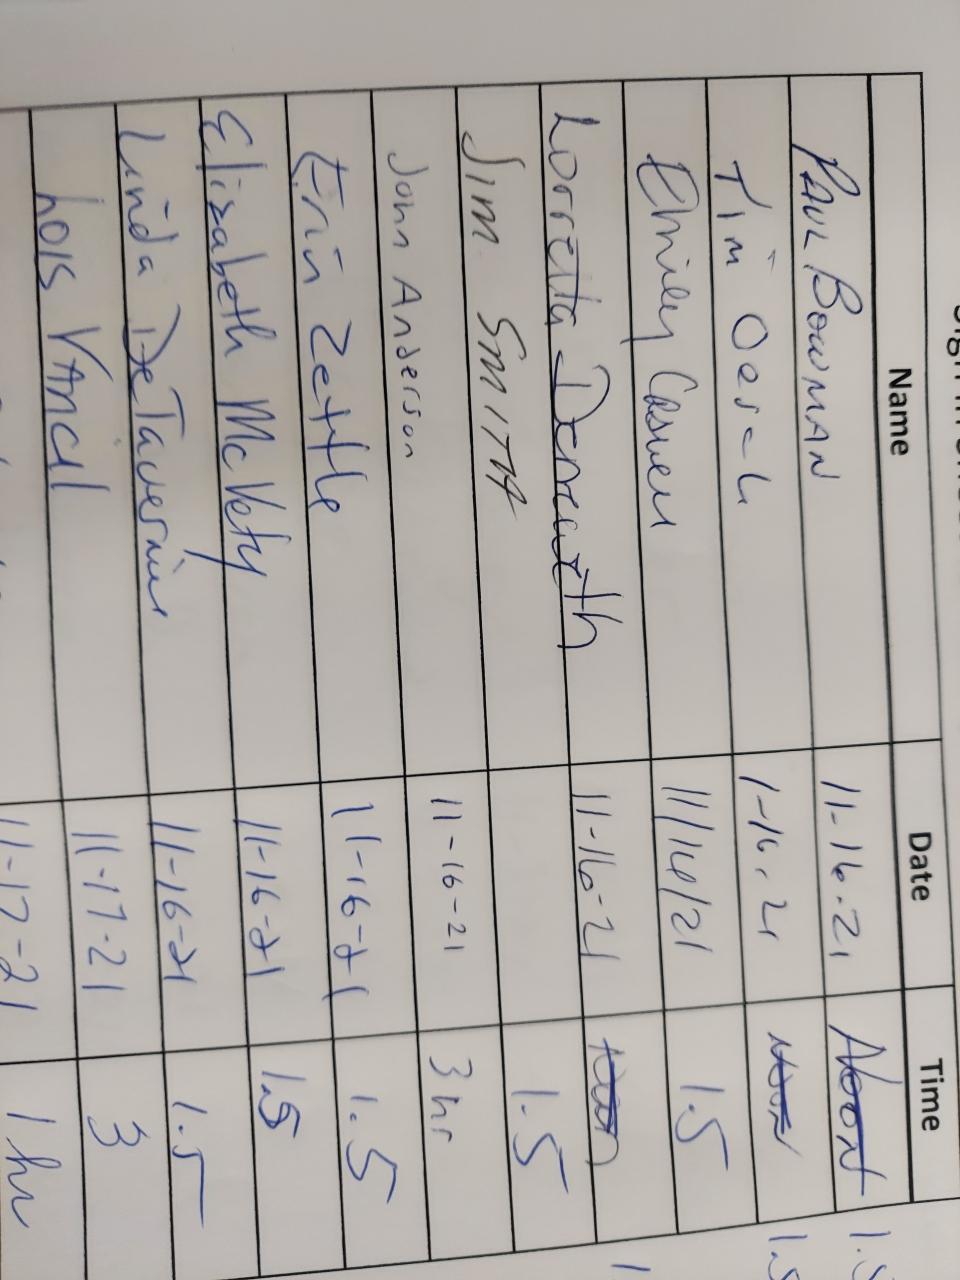 Name Date Time
PAUL BOWMAN 11-16-21 Noon 1.5
Tim Oesch 1-16-21 Noon 1.5
Emily 11/16/21 1.5
Lorretta 11-16-21 Noon 1
Jim SMITH 1.5
John Anderson 11-16-21 3 hr
Erin Zettle 11-16-21 1.5
Elizabeth McVety 11-16-21 1.5
Linda DeTavernier 11-16-21 1.5
Lois VANCIL 11-17-21 3
11-17-21 1 hr